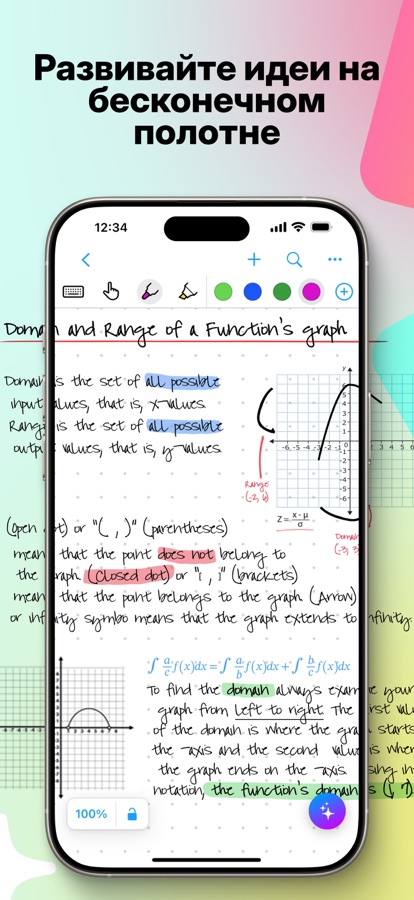 Развивайте идеи на
бесконечном
полотне
12:34
Domain and Range of a Function's graph
Domain is the set of all possible
input values, that is, x-values
Range is the set of all possible
output values, that is, y-values
Range
(-2, 6)
Z = x - μ / σ
Domain
(-3, 3
(open dot) or "( , )" (parentheses)
mean that the point does not belong to
the graph (closed dot) or "[ , ]" (brackets)
mean that the point belongs to the graph (Arrow)
or infinity symbo means that the graph extends to infinity.
∫ a/c f(x)dx = ∫ a/b f(x)dx + ∫ b/c f(x)dx
To find the domain always examine your
graph from left to right. The first val
of the domain is where the graph starts
the -axis and the second value is wher
the graph ends on the -axis. using in
notation, the function's domain is (1, 7)
100%